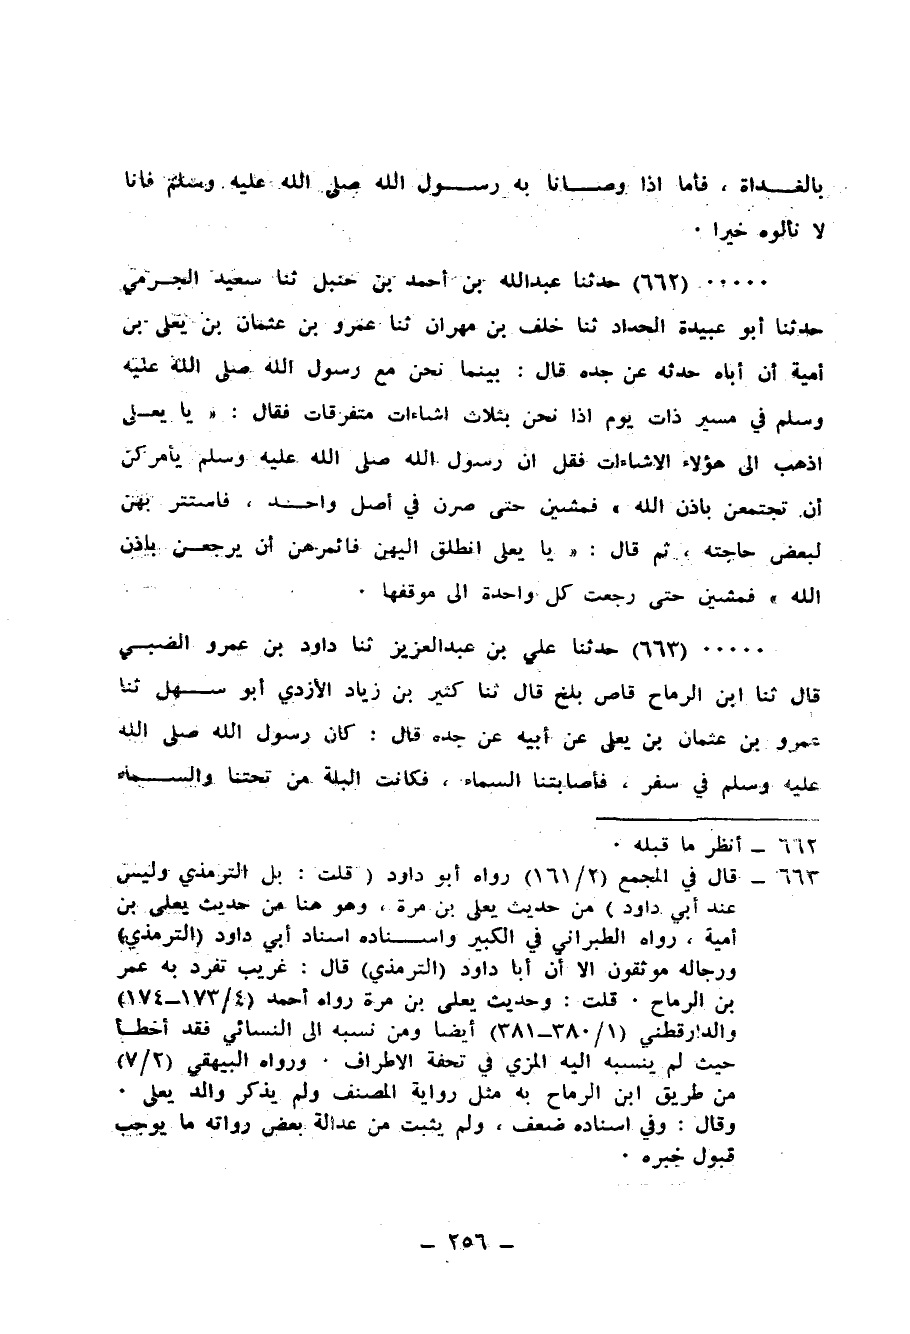 بالغداة ، فأما اذا وصانا به رسول الله صلى الله عليه وسلم فانا
لا نألوه خيرا ٠
٠٠٠٠٠ (٦٦٢) حدثنا عبدالله بن أحمد بن حنبل ثنا سعيد الجرمي
حدثنا أبو عبيدة الحداد ثنا خلف بن مهران ثنا عمرو بن عثمان بن يعلى بن
أمية أن أباه حدثه عن جده قال : بينما نحن مع رسول الله صلى الله عليه
وسلم في مسير ذات يوم اذا نحن بثلاث اشاءات متفرقات فقال : « يا يعلى
اذهب الى هؤلاء الاشاءات فقل ان رسول الله صلى الله عليه وسلم يأمركن
أن تجتمعن باذن الله » فمشين حتى صرن في أصل واحد ، فاستتر بهن
لبعض حاجته ، ثم قال : « يا يعلى انطلق اليهن فائمرهن أن يرجعن باذن
الله » فمشين حتى رجعت كل واحدة الى موقفها ٠
٠٠٠٠٠ (٦٦٣) حدثنا علي بن عبدالعزيز ثنا داود بن عمرو الضبي
قال ثنا ابن الرماح قاص بلغ قال ثنا كثير بن زياد الأزدي أبو سهل ثنا
عمرو بن عثمان بن يعلى عن أبيه عن جده قال : كان رسول الله صلى الله
عليه وسلم في سفر ، فأصابتنا السماء ، فكانت البلة من تحتنا والسماء
٦٦٢ ــ أنظر ما قبله ٠
٦٦٣ ــ قال في المجمع (١٦١/٢) رواه أبو داود ( قلت : بل الترمذي وليس
عند أبي داود ) من حديث يعلى بن مرة ، وهو هنا من حديث يعلى بن
أمية ، رواه الطبراني في الكبير واسناده اسناد أبي داود (الترمذي)
ورجاله موثقون الا أن أبا داود (الترمذي) قال : غريب تفرد به عمر
بن الرماح ٠ قلت : وحديث يعلى بن مرة رواه أحمد (١٧٣/٤ــ١٧٤)
والدارقطني (٣٨٠/١ــ٣٨١) أيضا ومن نسبه الى النسائي فقد أخطأ
حيث لم ينسبه اليه المزي في تحفة الاطراف ٠ ورواه البيهقي (٧/٢)
من طريق ابن الرماح به مثل رواية المصنف ولم يذكر والد يعلى ٠
وقال : وفي اسناده ضعف ، ولم يثبت من عدالة بعض رواته ما يوجب
قبول خبره ٠
ــ ٢٥٦ ــ